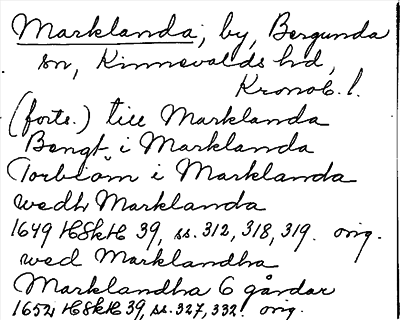 Marklanda, by, Bergunda
sn, Kinnevalds hd,
Kronob. l.
(forts.) till Marklanda
Bengt i Marklanda
Torbiöm i Marklanda
wedh Marklanda
1649 HSkH 39, ss. 312, 318, 319. orig.
wed Marklandha
Marklandha 6 gårdar
1652 HSkH 39, ss. 327, 332. orig.